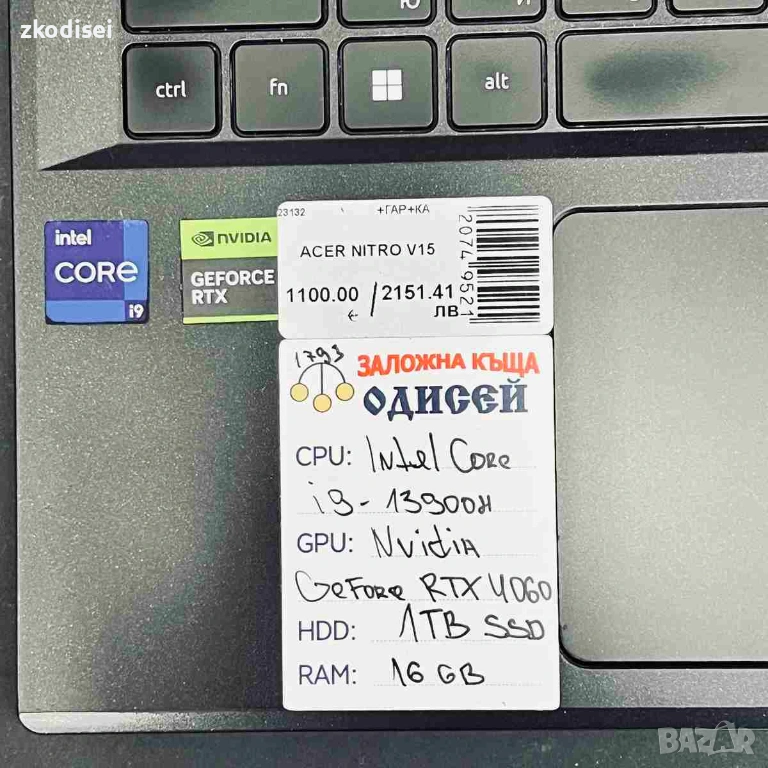 zkodisei
ctrl
fn
alt
intel
CORE
i9
NVIDIA
GEFORCE
RTX
23132
+ГАР+КА
ACER NITRO V15
1100.00 / 2151.41
ЛВ
2074 9521
1793
ЗАЛОЖНА КЪЩА
ОДИСЕЙ
CPU: Intel Core
i9-13900H
GPU: Nvidia
GeForce RTX 4060
HDD: 1TB SSD
RAM: 16 GB
BAZAR